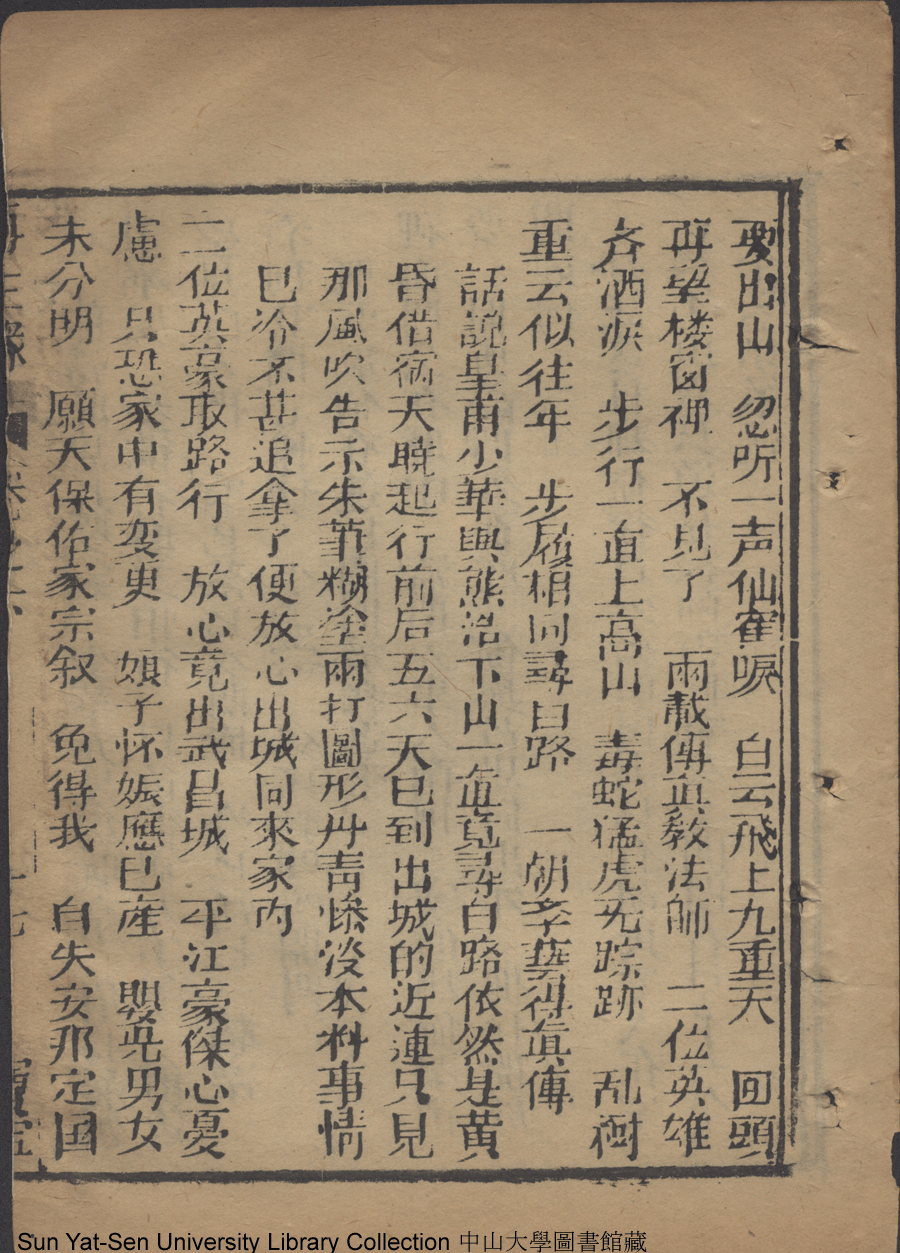 要出山　忽听一声仙隺唳　白云飛上九重天　回頭
再望楼窗裡　不見了　兩載傳真教法師　二位英雄
斉洒淚　步行一直上高山　毒蛇猛虎无踪跡　乱樹
重云似往年　步履相同尋旧路　一朝斈藝得真傳
話説皇甫少華與熊浩下山一直竟尋白路依然是黄
昏借宿天曉起行前后五六天已到出城的近連只見
那風吹告示朱筆糊塗雨打圖形丹青慘淡本料事情
已冷不甚追拿了便放心出城同來家内
二位英豪取路行　放心竟出武昌城　平江豪傑心憂
慮　只恐家中有変更　娘子怀娠應已產　嬰児男女
未分明　願天保佑家宗叙　免得我　自失安邦定国
再生緣　十七
Sun Yat-Sen University Library Collection 中山大學圖書館藏